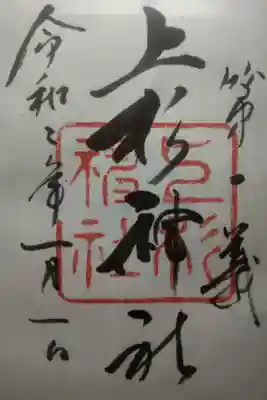 第一義
上杉神社
上杉
神社
令和二年一月一日